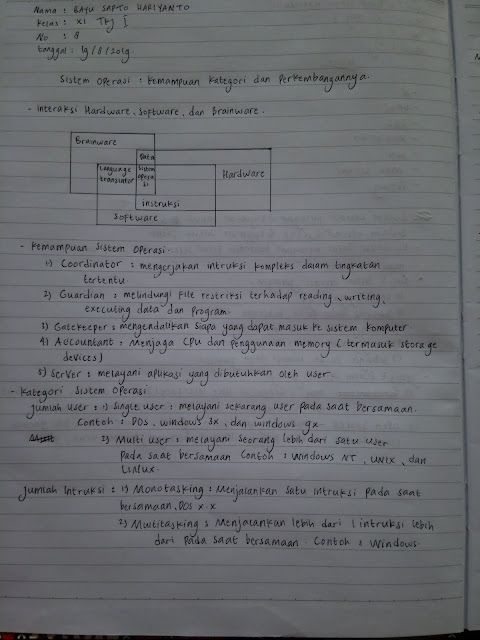 Nama : BAYU SAPTO HARIYANTO
Kelas : XI TKJ I
No : 8
tanggal : 19/8/2019
Sistem Operasi : Kemampuan Kategori dan Perkembangannya.
- Interaksi Hardware, Software, dan Brainware.
Brainware
Data
Language translator
Sistem operasi
Hardware
instruksi
Software
- Kemampuan Sistem Operasi
1) Coordinator : mengerjakan intruksi kompleks dalam tingkatan
tertentu.
2) Guardian : melindungi file restriksi terhadap reading, writing,
executing data dan program.
3) Gatekeeper : mengendalikan siapa yang dapat masuk ke sistem komputer
4) Accountant : Menjaga CPU dan Penggunaan memory (termasuk storage
devices)
5) Server : melayani aplikasi yang dibutuhkan oleh user.
- Kategori Sistem Operasi
Jumlah user : 1) Single user : melayani sekarang user pada saat bersamaan.
Contoh : DOS, windows 3x, dan windows 9x
2) Multi user : melayani seorang lebih dari satu user
pada saat bersamaan Contoh : Windows NT, UNIX, dan
Linux.
Jumlah Intruksi : 1) Monotasking : Menjalankan satu intruksi pada saat
bersamaan. DOS x.x
2) Multitasking : Menjalankan lebih dari 1 intruksi lebih
dari pada saat bersamaan. Contoh : Windows.